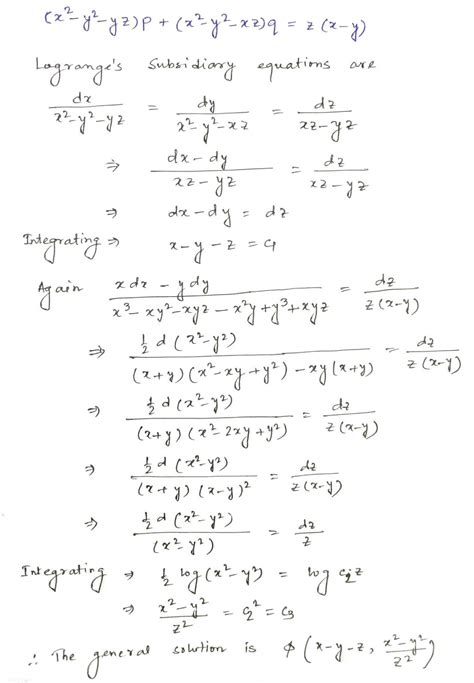 (x²-y²-yz)p + (x²-y²-xz)q = z(x-y)
Lagrange's subsidiary equations are
dx/(x²-y²-yz) = dy/(x²-y²-xz) = dz/(xz-yz)
⇒ (dx-dy)/(xz-yz) = dz/(xz-yz)
⇒ dx-dy = dz
Integrating ⇒ x-y-z = C₁
Again (xdx - ydy)/(x³-xy²-xyz-x²y+y³+xyz) = dz/(z(x-y))
⇒ ½d(x²-y²)/((x+y)(x²-xy+y²)-xy(x+y)) = dz/(z(x-y))
⇒ ½d(x²-y²)/((x+y)(x²-2xy+y²)) = dz/(z(x-y))
⇒ ½d(x²-y²)/((x+y)(x-y)²) = dz/(z(x-y))
⇒ ½d(x²-y²)/(x²-y²) = dz/z
Integrating ⇒ ½log(x²-y²) = log C₂z
⇒ (x²-y²)/z² = C₂² = C₃
∴ The general solution is φ(x-y-z, (x²-y²)/z²)